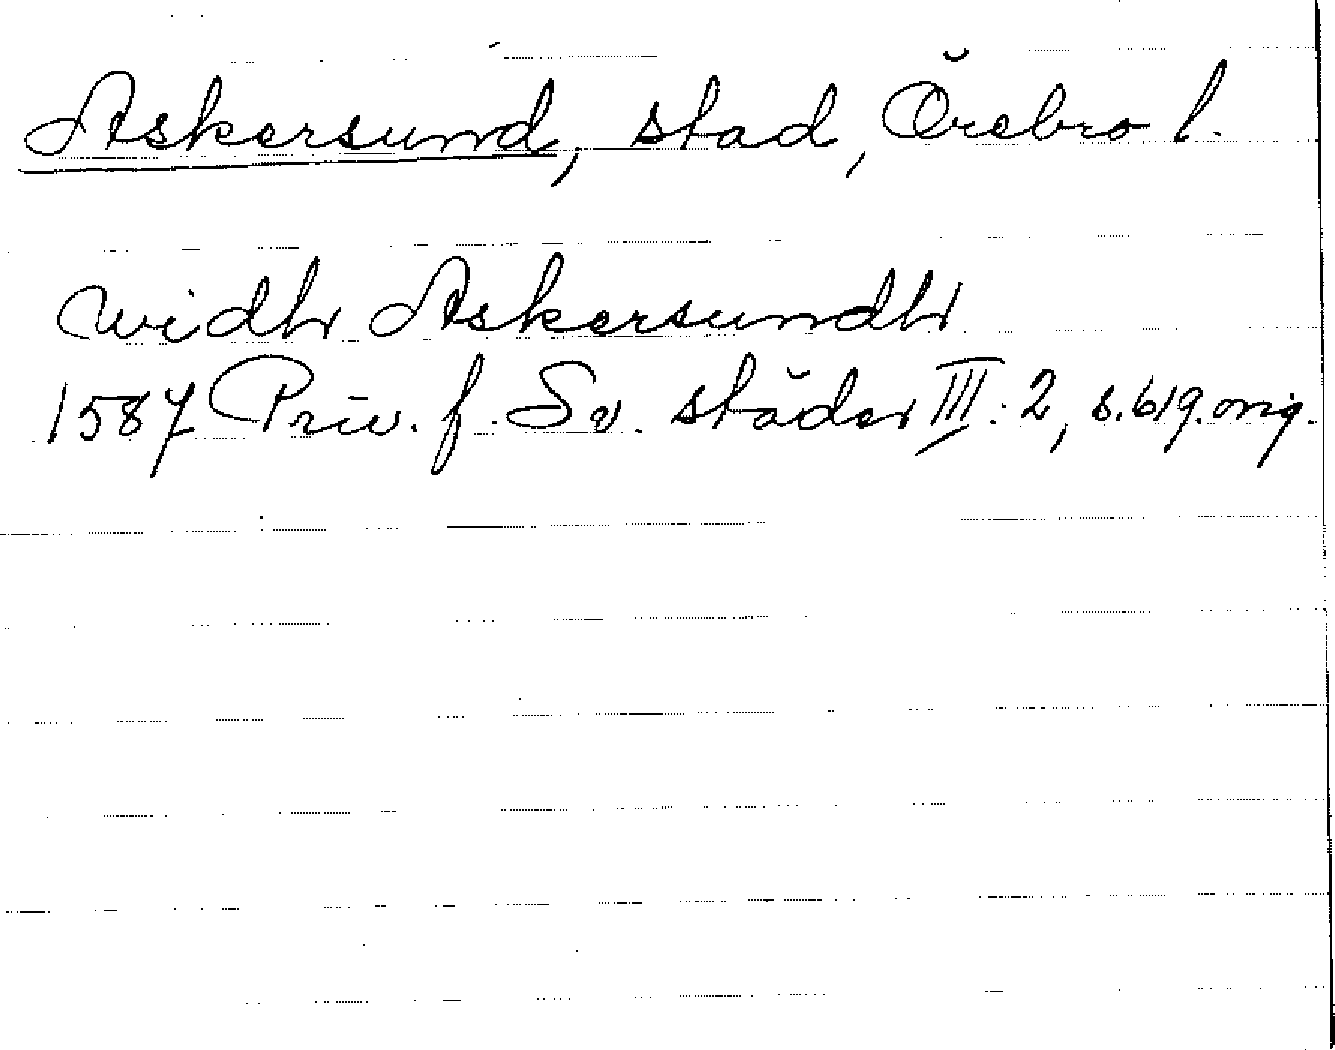 Askersund, stad, Örebro l.
widh Askersundh
1587 Priv. f. Sv. städer III:2, s. 619. orig.